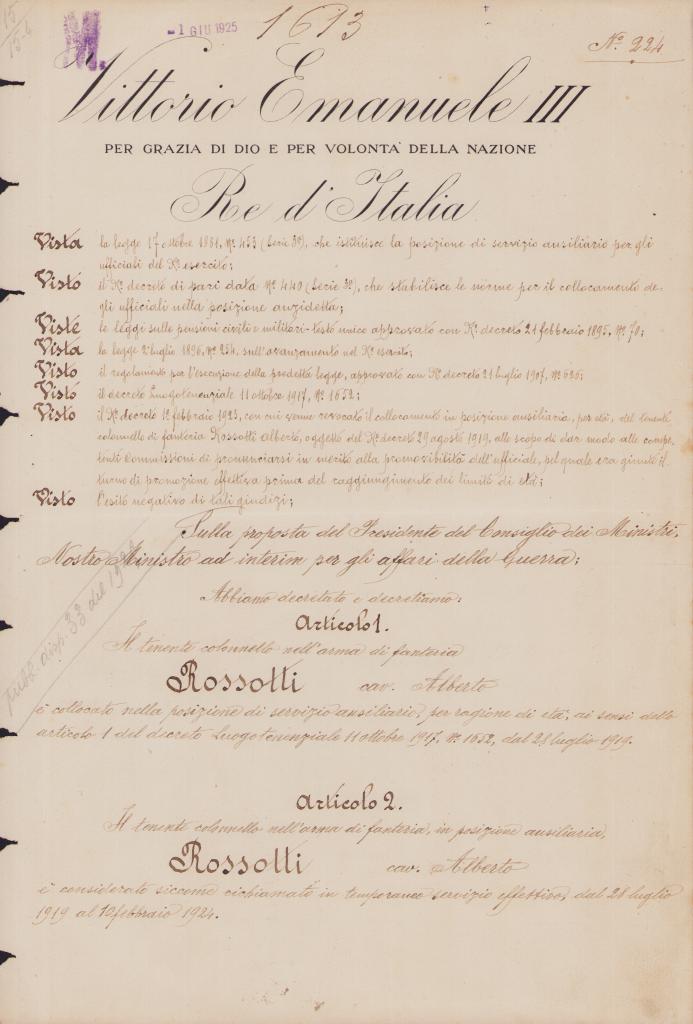 15
15-6
-1 GIU 1925
1613
Nº 224
Vittorio Emanuele III
PER GRAZIA DI DIO E PER VOLONTA' DELLA NAZIONE
Re d'Italia
Vista la legge 17 ottobre 1881, Nº 453 (Serie 3ª), che istituisce la posizione di servizio ausiliario per gli
ufficiali del Rº esercito;
Visto il Rº decreto di pari data Nº 440 (Serie 3ª), che stabilisce le norme per il collocamento de-
gli ufficiali nella posizione anzidetta;
Viste le leggi sulle pensioni civili e militari-testo unico approvato con Rº decreto 21 febbraio 1895, Nº 70;
Vista la legge 2 luglio 1896, Nº 254, sull'avanzamento nel Rº esercito;
Visto il regolamento per l'esecuzione della predetta legge, approvato con Rº decreto 21 luglio 1907, Nº 626;
Visto il decreto Luogotenenziale 11 ottobre 1917, Nº 1652;
Visto il Rº decreto 12 febbraio 1925, con cui venne revocato il collocamento in posizione ausiliaria, per età, del tenente
colonnello di fanteria Rossotti Alberto, oggetto del Rº decreto 29 agosto 1919, allo scopo di dar modo alle compe-
tenti Commissioni di pronunciarsi in merito alla promovibilità dell'ufficiale, pel quale era giunto il
turno di promozione effettiva prima del raggiungimento dei limiti di età;
Visto l'esito negativo di tali giudizi;
Sulla proposta del Presidente del Consiglio dei Ministri,
Nostro Ministro ad interim per gli affari della Guerra;
Abbiamo decretato e decretiamo:
Articolo 1.
Il tenente colonnello nell'arma di fanteria
Rossotti cav. Alberto
è collocato nella posizione di servizio ausiliario, per ragione di età, ai sensi dello
articolo 1 del decreto Luogotenenziale 11 ottobre 1917, Nº 1652, dal 28 luglio 1919.
Articolo 2.
Il tenente colonnello nell'arma di fanteria, in posizione ausiliaria,
Rossotti cav. Alberto
è considerato siccome richiamato in temporaneo servizio effettivo, dal 28 luglio
1919 al 10 febbraio 1924.
pubbl. disp. 33 del